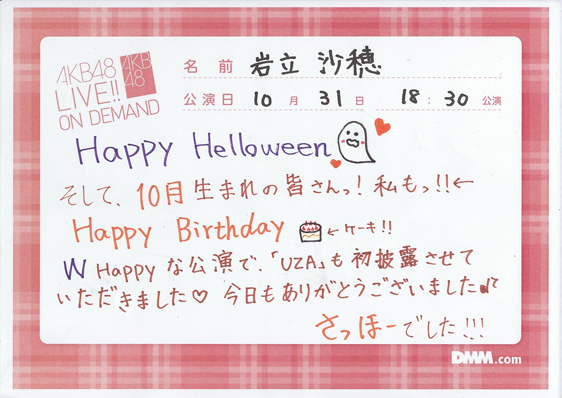 AKB48
LIVE!!
ON DEMAND
AKB
48
名前 岩立 沙穂
公演日 10月 31日 18:30 公演
Happy Helloween
そして、10月生まれの皆さんっ!私もっ!!←
Happy Birthday ←ケーキ!!
W Happyな公演で、「UZA」も初披露させて
いただきました♡ 今日もありがとうございました♪
さっほーでした!!!
DMM.com